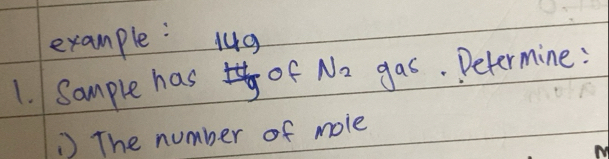 example:
14g
1. Sample has of N2 gas. Determine:
i) The number of mole